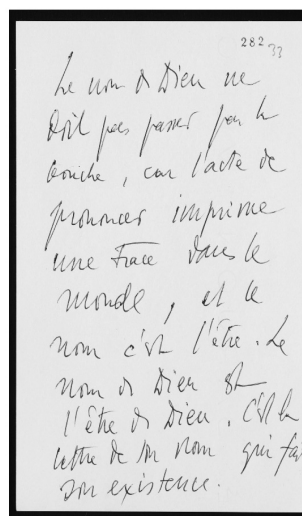 282 33
Le nom de Dieu ne
doit pas passer par la
bouche, car l'acte de
prononcer imprime
une Trace dans le
monde, et le
nom c'est l'être. Le
nom de Dieu est
l'être de Dieu. C'est la
lettre de son nom qui fait
son existence.